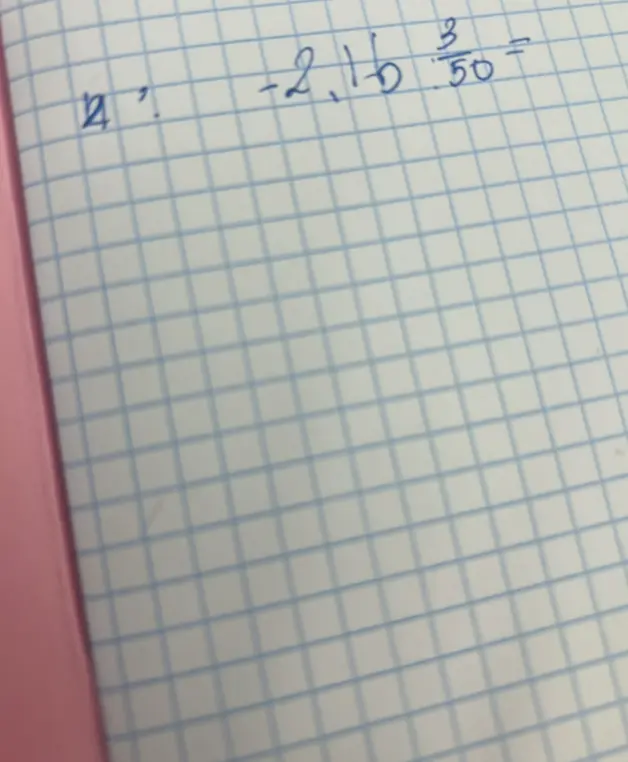 4: -2,16 : 3/50 =